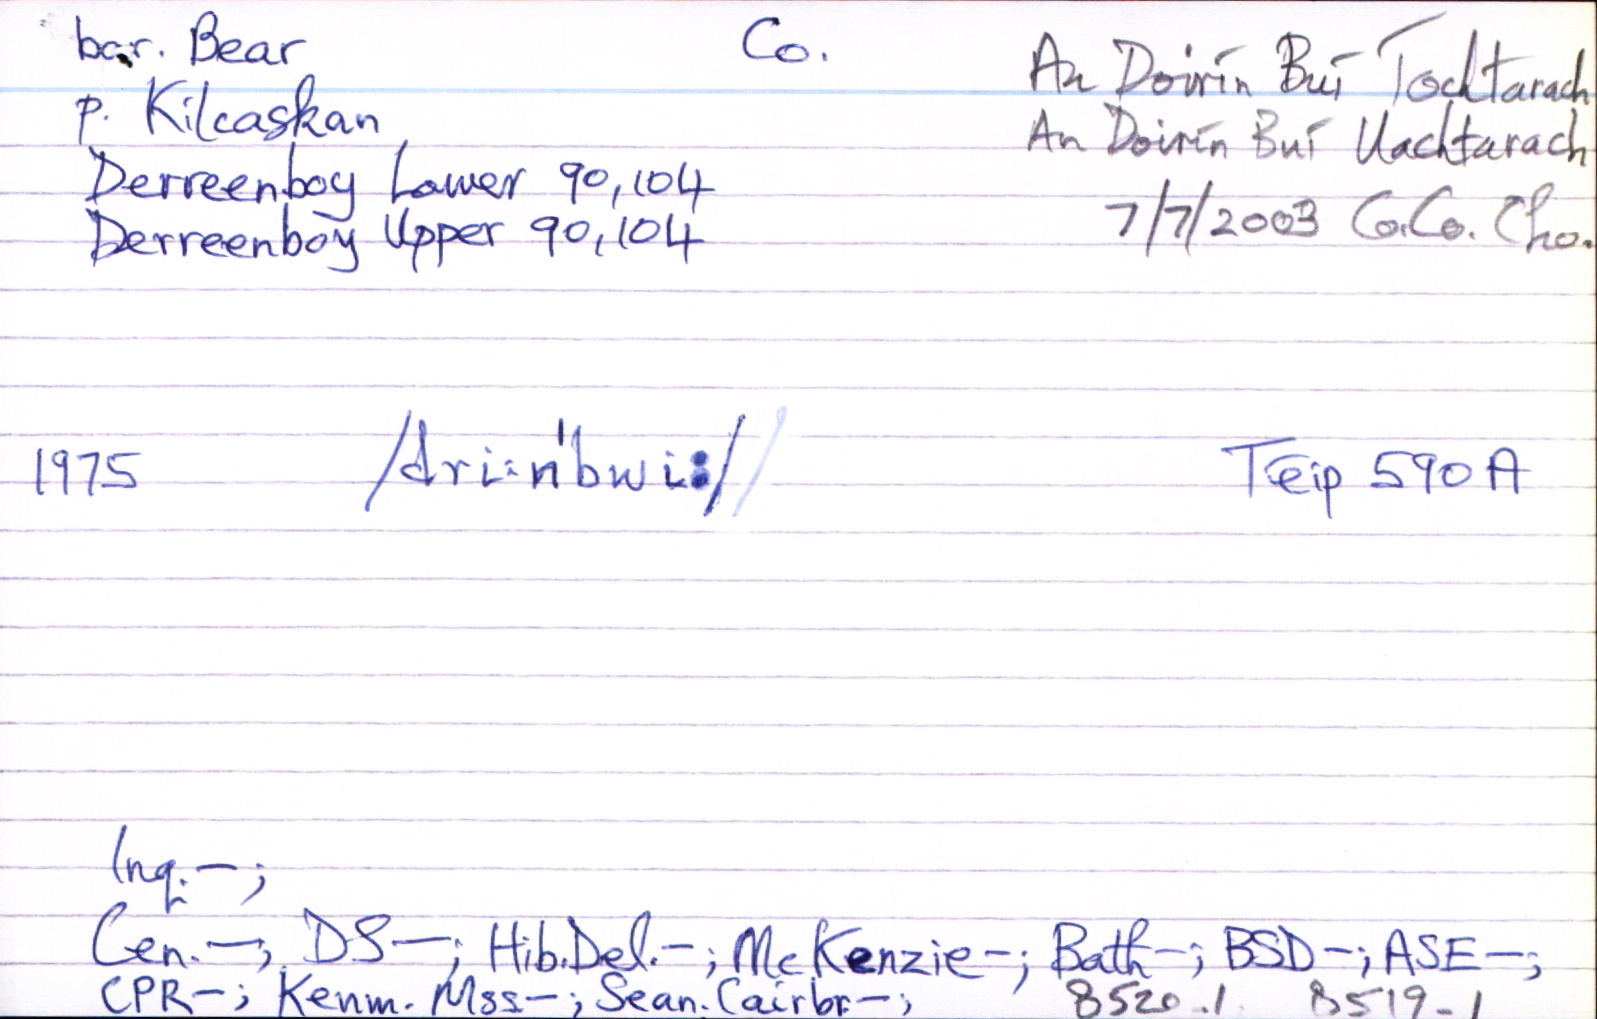 bar. Bear Co. An Doirín Buí Íochtarach
p. Kilcaskan An Doirín Buí Uachtarach
Derreenboy Lower 90,104
Derreenboy Upper 90,104 7/7/2003 Co.Co. Cho.
1975 /dri:n'bwi:/ Téip 590A
Inq. –;
Cen. –; DS –; Hib.Del. –; McKenzie –; Bath –; BSD –; ASE –;
CPR –; Kenm. Mss –; Sean. Cairbr –; 8520.1 8519-1